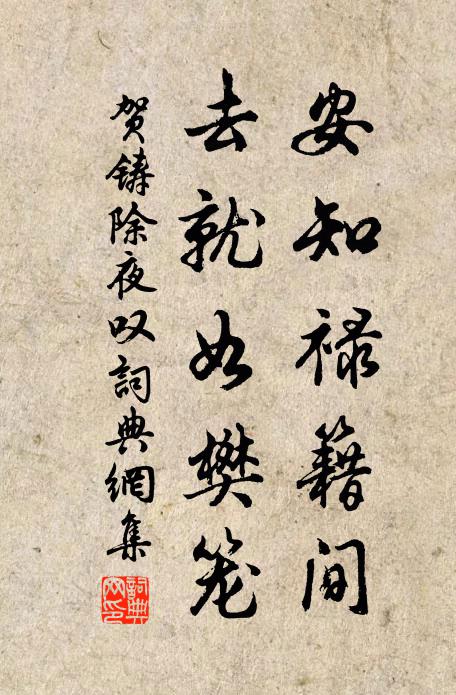 安知禄籍间
去就如樊笼
贺铸除夜叹詞典網集
詞典網印